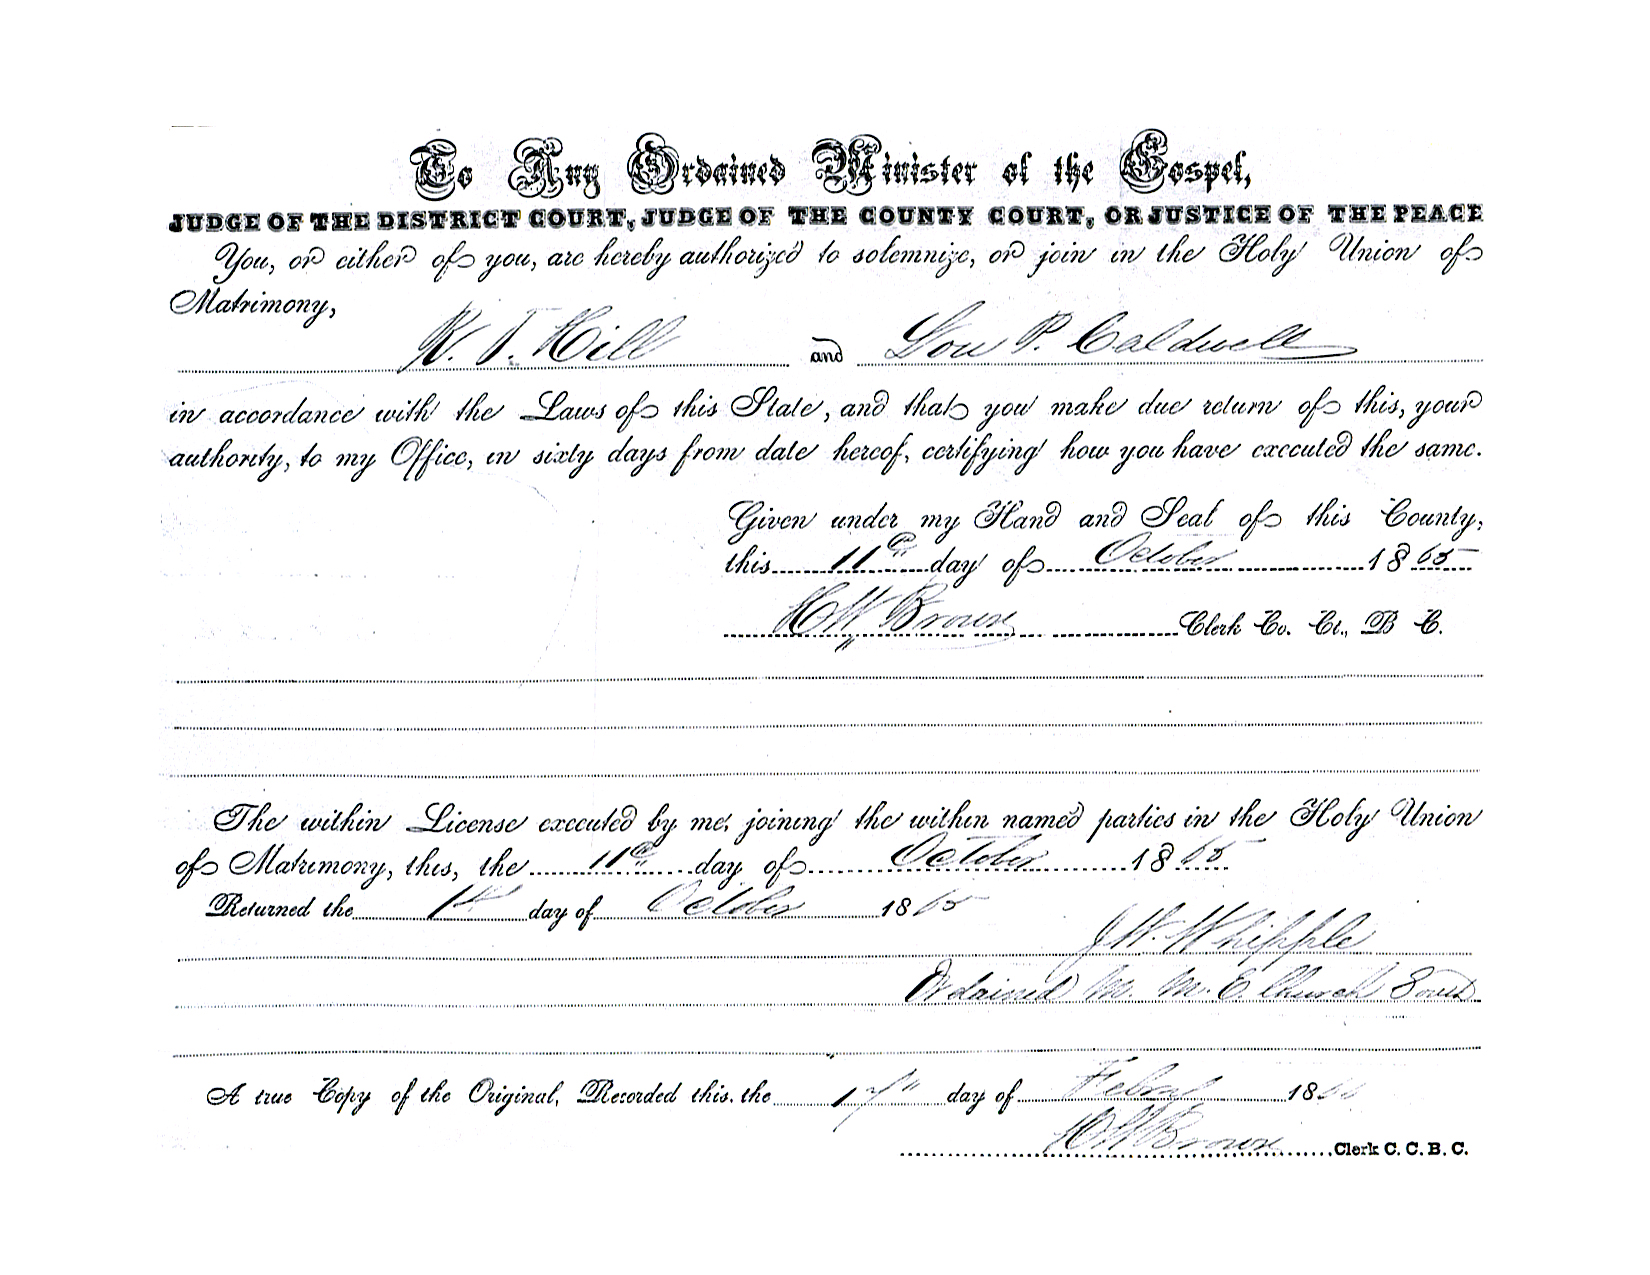 To Any Ordained Minister of the Gospel,
JUDGE OF THE DISTRICT COURT, JUDGE OF THE COUNTY COURT, OR JUSTICE OF THE PEACE
You, or either of you, are hereby authorized to solemnize, or join in the Holy Union of
Matrimony,
T. Hill and Lou P. Caldwell
in accordance with the Laws of this State, and that you make due return of this, your
authority, to my Office, in sixty days from date hereof, certifying how you have executed the same.
Given under my Hand and Seal of this County,
this 11th day of October 1865
Brown Clerk Co. Ct., B C.
The within License executed by me, joining the within named parties in the Holy Union
of Matrimony, this, the 11th day of October 1865
Returned the day of October 1865
J W. Whipple
Ordained M. M. E. Church South
A true Copy of the Original, Recorded this, the 17th day of 18
Brown Clerk C. C. B. C.